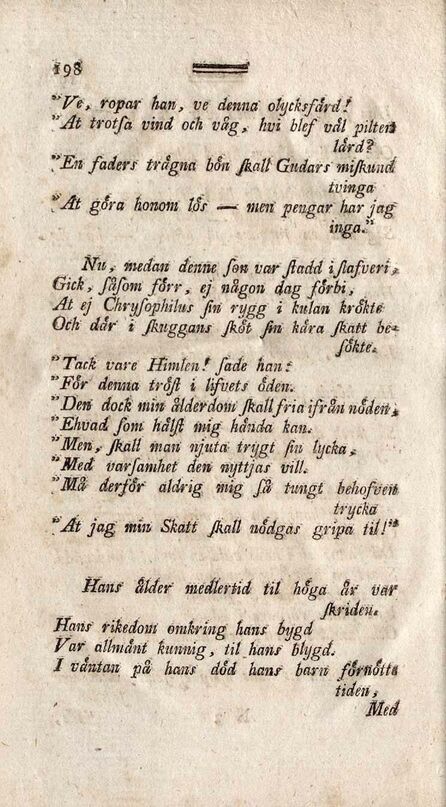 198
"Ve, ropar han, ve denna olycksfärd!
"At trotſa vind och våg, hvi blef väl pilten
lärd?
"En faders trägna bön ſkall Gudars miſkund
tvinga
"At göra honom lös — men pengar har jag
inga."
Nu, medan denne ſon var ſtadd i ſlafveri,
Gick, ſåſom förr, ej någon dag förbi,
At ej Chryſophilus ſin rygg i kulan krökte
Och där i ſkuggans ſköt ſin kära ſkatt be-
ſökte.
"Tack vare Himlen! ſade han:
"För denna tröſt i lifvets öden.
"Den dock min ålderdom ſkall fria ifrån nöden,
"Ehvad ſom hälſt mig hända kan.
"Men, ſkall man njuta trygt ſin lycka,
"Med varſamhet den nyttjas vill.
"Må derför aldrig mig ſå tungt behofven
trycka
"At jag min Skatt ſkall nödgas gripa til!"
Hans ålder medlertid til höga år var
ſkriden.
Hans rikedom omkring hans bygd
Var allmänt kunnig, til hans blygd.
I väntan på hans död hans barn förnötta
tiden,
Med